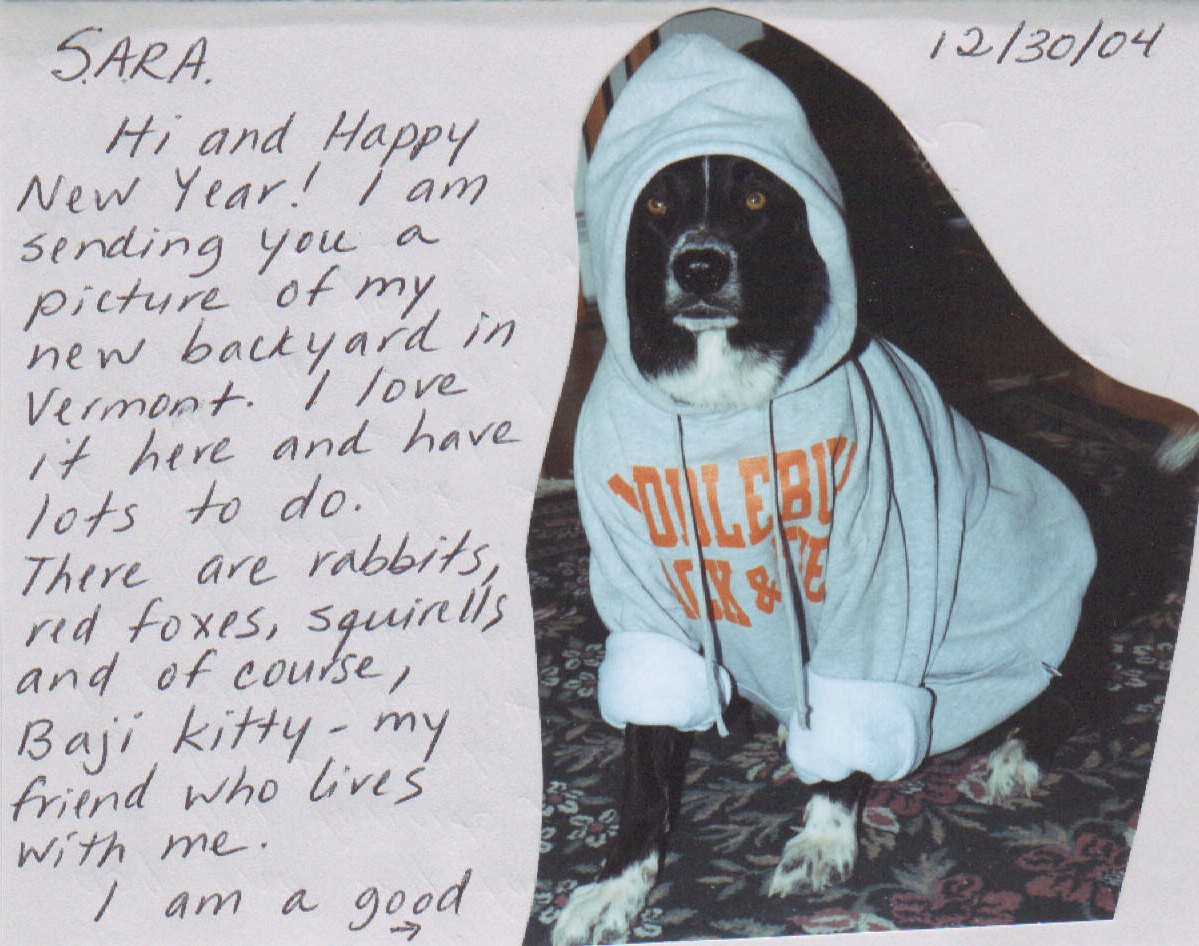 S.A.R.A.
12/30/04
Hi and Happy
New Year! I am
sending you a
picture of my
new backyard in
Vermont. I love
it here and have
lots to do.
There are rabbits,
red foxes, squirells
and of course,
Baji kitty - my
friend who lives
with me.
I am a good
→
ODLEBU
CK &